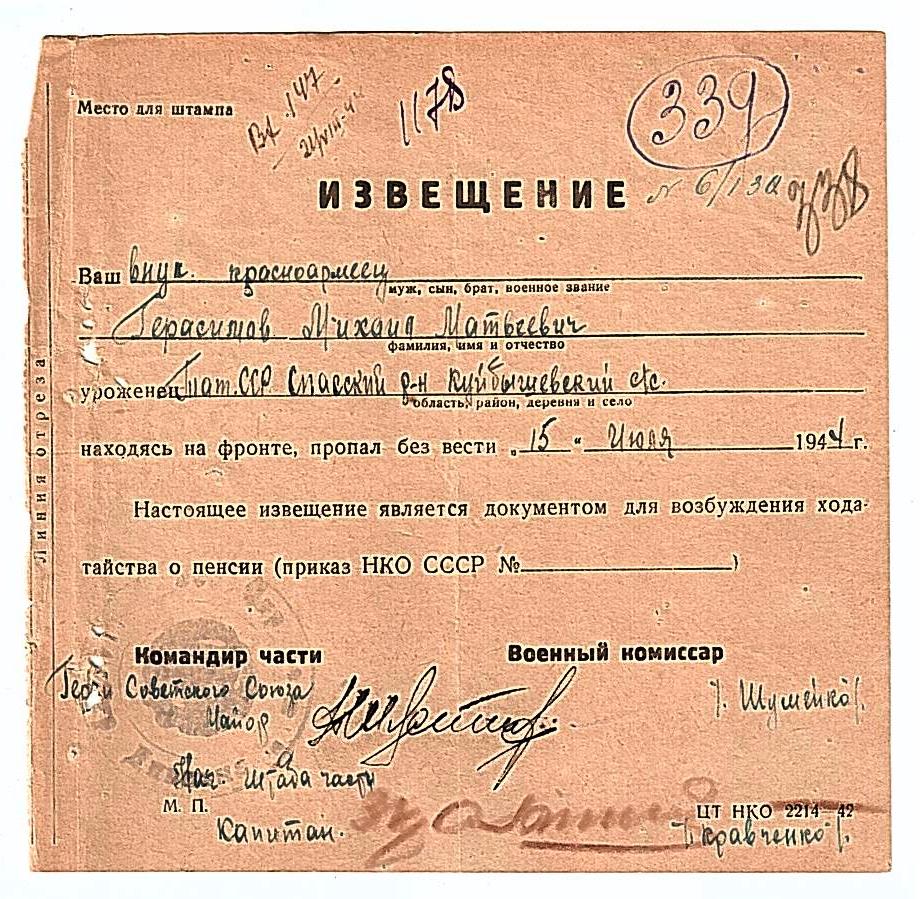 Место для штампа
Вх. 147
1178
339
338
ИЗВЕЩЕНИЕ
Ваш внук. красноармеец
муж, сын, брат, военное звание
Герасимов Михаил Матвеевич
фамилия, имя и отчество
уроженец Тат.ССР Спасский р-н Куйбышевский с/с.
область, район, деревня и село
находясь на фронте, пропал без вести „15“ Июля 1944 г.
Настоящее извещение является документом для возбуждения хода-
тайства о пенсии (приказ НКО СССР № )
Линия отреза
Командир части Военный комиссар
Герой Советского Союза
Майор /. Шуменко/.
Нач. Штаба части
М. П. ЦТ НКО 2214—42
Капитан. /. Кравченко/.